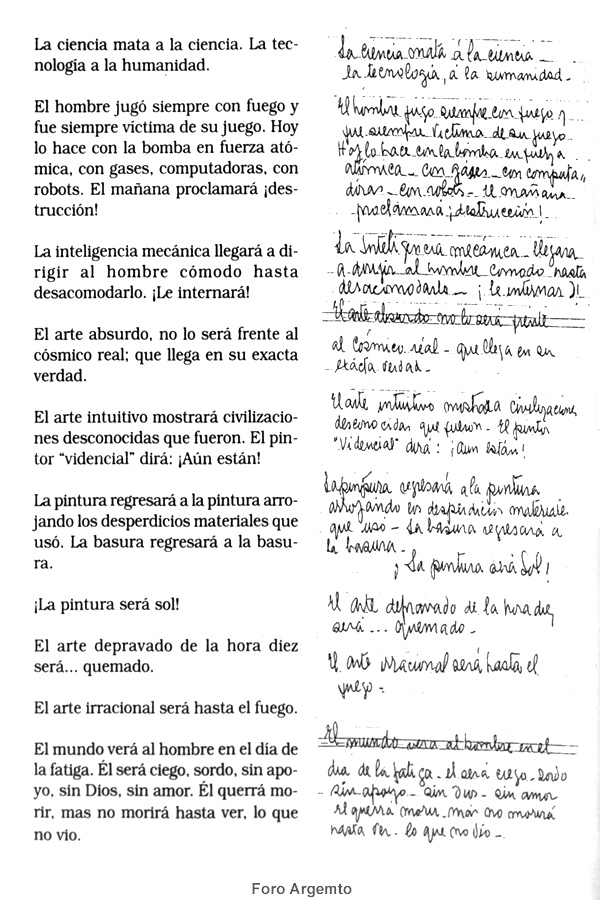 La ciencia mata a la ciencia. La tec-
nología a la humanidad.
El hombre jugó siempre con fuego y
fue siempre víctima de su juego. Hoy
lo hace con la bomba en fuerza ató-
mica, con gases, computadoras, con
robots. El mañana proclamará ¡des-
trucción!
La inteligencia mecánica llegará a di-
rigir al hombre cómodo hasta
desacomodarlo. ¡Le internará!
El arte absurdo, no lo será frente al
cósmico real; que llega en su exacta
verdad.
El arte intuitivo mostrará civilizacio-
nes desconocidas que fueron. El pin-
tor “videncial” dirá: ¡Aún están!
La pintura regresará a la pintura arro-
jando los desperdicios materiales que
usó. La basura regresará a la basu-
ra.
¡La pintura será sol!
El arte depravado de la hora diez
será... quemado.
El arte irracional será hasta el fuego.
El mundo verá al hombre en el día de
la fatiga. Él será ciego, sordo, sin apo-
yo, sin Dios, sin amor. Él querrá mo-
rir, mas no morirá hasta ver, lo que
no vio.
La ciencia mata á la ciencia –
la tecnología, á la humanidad –
El hombre jugo siempre con fuego y
fue siempre Victima de su juego –
Hoy lo hace con la bomba en fuerza
atómica – con gases – con computa
doras – con robots – El mañana
proclamará ¡destrucción!
La Inteligencia mecánica – llegara
a dirigir al hombre comodo hasta
desacomodarlo – ¡le internar)!
El arte absurdo no lo será frente
al Cósmico real – que llega en su
exácta verdad –
El arte intuitivo mostrara civilizaciones
desconocidas que fueron – El pintor
"Videncial" dirá: ¡Aun están!
La pintura regresará a la pintura
arrojando los desperdicios materiales
que usó – La basura regresará a
la basura –
¡La pintura será Sol!
El arte depravado de la hora diez
será... quemado –
El arte irracional será hasta el
fuego –
El mundo vera al hombre en el
dia de la fatiga – el será ciego – sordo
sin apoyo – sin Dios – sin amor
el querrá morir – mas no morirá
hasta ver – lo que no vio –
Foro Argemto